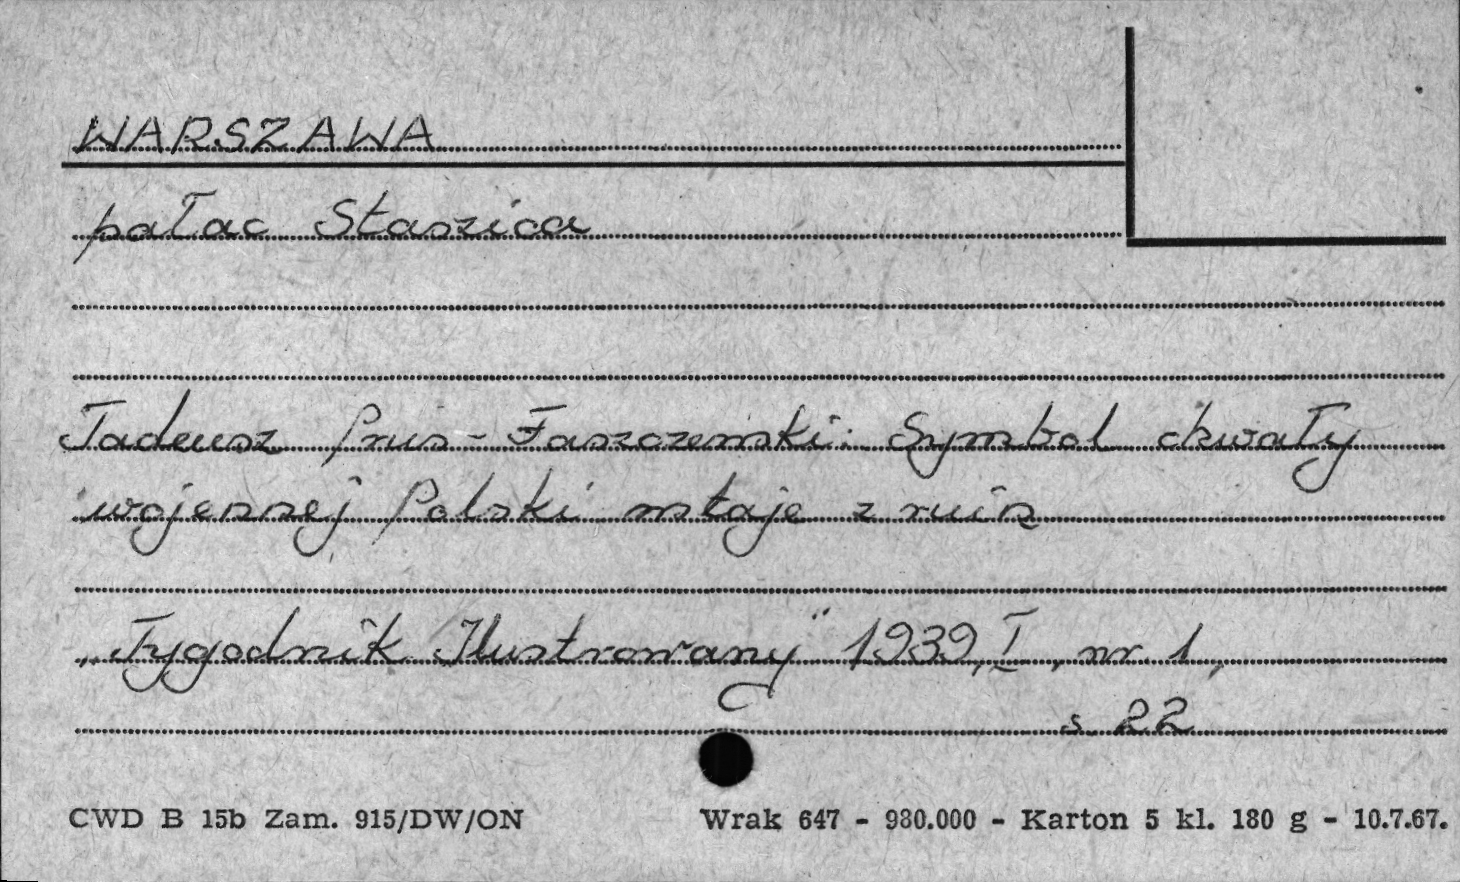 WARSZAWA
pałac Staszica
Tadeusz Prus-Faszczewski: Symbol chwały
wojennej Polski wstaje z ruin
„Tygodnik Ilustrowany" 1939, I, nr. 1,
s. 22
CWD B 15b Zam. 915/DW/ON Wrak 647 - 980.000 - Karton 5 kl. 180 g - 10.7.67.